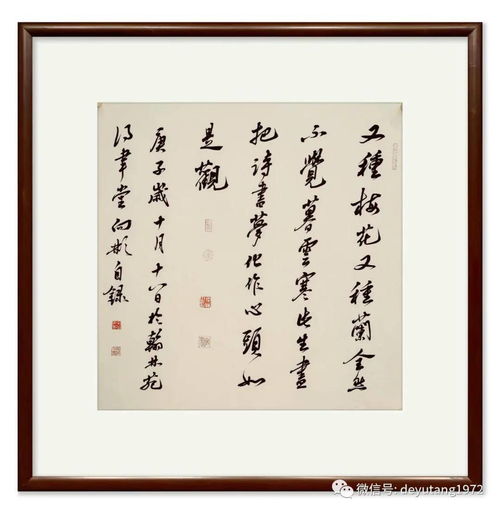 又種梅花又種蘭全然
不覺暮雲寒此生盡
把詩書夢化作心頭如
是觀
庚子歲十月十八日於翰林苑
得韋堂向彬自錄
微信号: deyutang1972